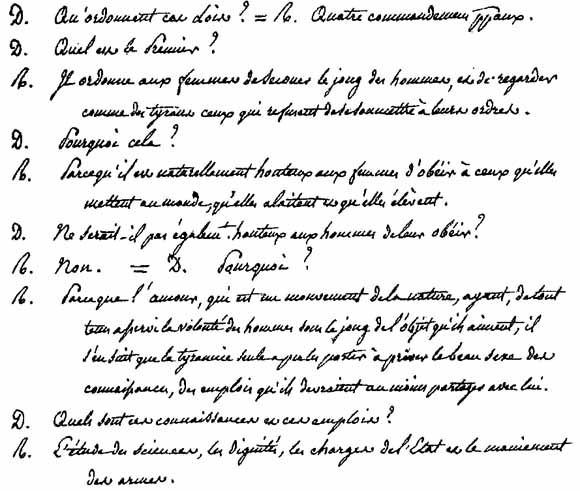 D. Qu'ordonnent ces Loix ? = R. Quatre commandemens ppaux.
D. Quel est le Premier ?
R. Il ordonne aux femmes de secouer le joug des hommes, et de regarder
comme des tyrans ceux qui refusent de se soumettre à leurs ordres.
D. Pourquoi cela ?
R. Parcequ'il est naturellement honteux aux femmes d'obéir à ceux qu'elles
mettent au monde, qu'elles alaitent et qu'elles élèvent.
D. Ne serait-il pas égalemt. honteux aux hommes de leur obéir ?
R. Non. = D. Pourquoi ?
R. Parceque l'amour, qui est un mouvement de la nature, ayant, de tout
tems asservi la volonté des hommes sous le joug de l'objet qu'ils aiment, il
s'en suit que la tyrannie seule a pu les porter à priver le beau sexe des
connaissances, des emplois qu'ils devraient au moins partager avec lui.
D. Quels sont ces connaissances et ces emplois ?
R. L'étude des sciences, les Dignités, les charges de l'Etat et le maniement
des armes.